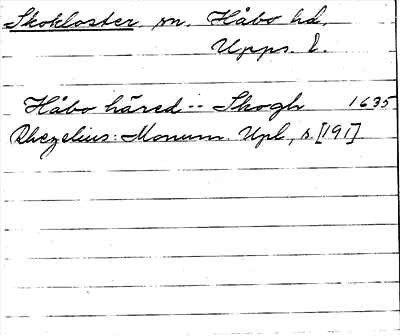 Skokloster, sn, Håbo hd,
Upps. l.
Håbo härad -- Skogh 1635
Rhezelius: Monum. Upl, s. [191]